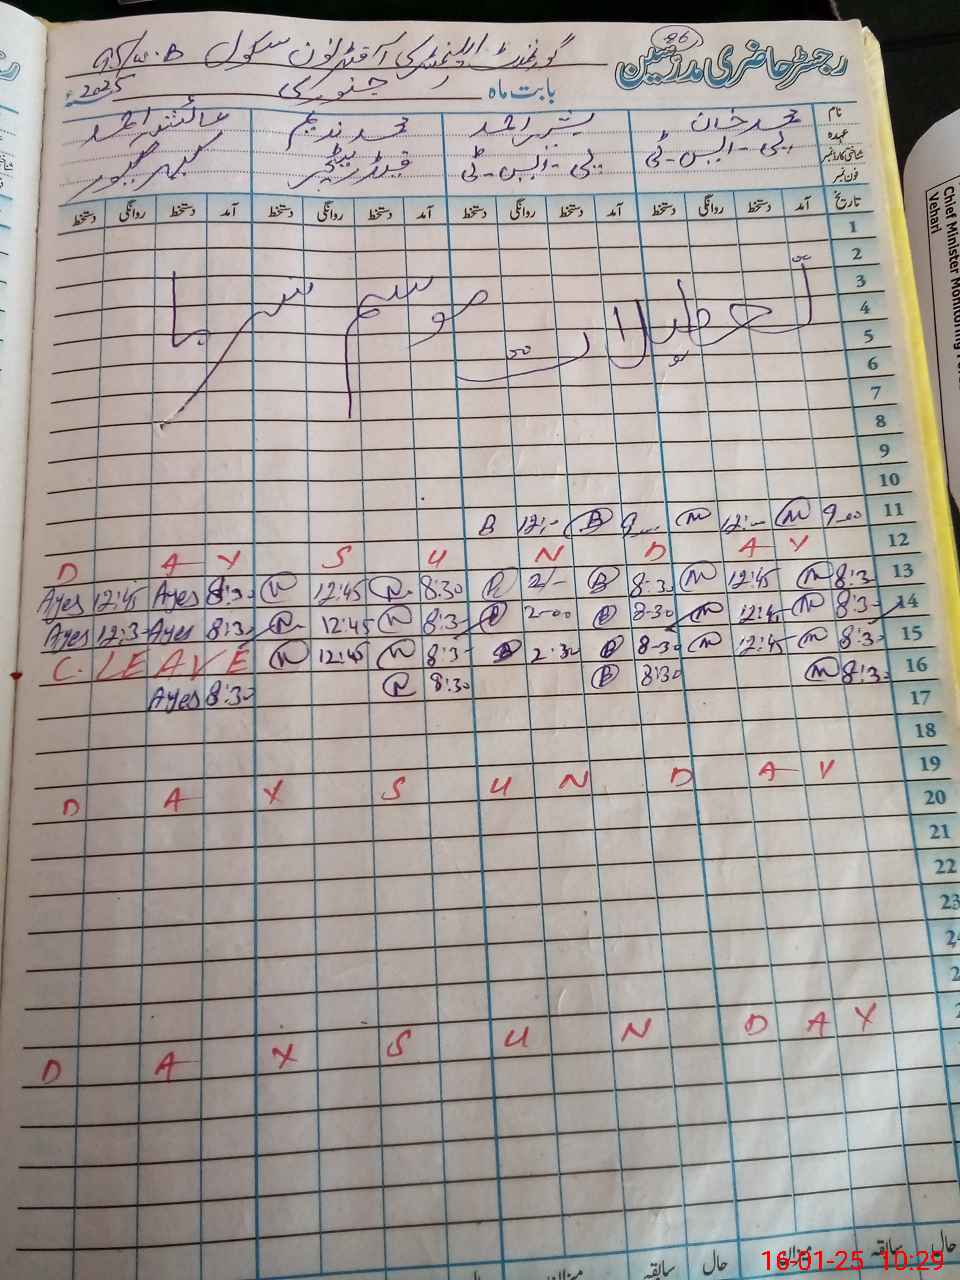 رجسٹر حاضری مدرسین
96
گورنمنٹ ایلیمنٹری آفٹرنون سکول 95/W.B
بابت ماہ جنوری 2025ء
نام محمد خان بشیر احمد محمد ندیم عائشہ احمد
عہدہ پی-ایس-ٹی پی-ایس-ٹی
شناختی کارڈ نمبر
فون نمبر
تاریخ آمد دستخط روانگی دستخط آمد دستخط روانگی دستخط آمد دستخط روانگی دستخط آمد دستخط روانگی دستخط
1
2
3
تعطیلات موسم سرما
4
5
6
7
8
9
10
B 12:- B 9 M 12:- M 9-00 11
D A Y S U N D A Y 12
Ayes 12:45 Ayes 8:3- N 12:45 N 8:30 B 2/- B 8:3- M 12:45 M 8:3- 13
Ayes 12:3- Ayes 8:3- N 12:45 N 8:3- B 2-00 B 8-30 M 12:45 M 8:3- 14
C. LEAVE N 12:45 N 8:3- B 2:30 B 8-30 M 12:45 M 8:3- 15
Ayes 8:30 N 8:30 B 8:30 M 8:3- 16
17
18
D A Y S U N D A Y 19
20
21
22
23
D A Y S U N D A Y
حال سابقہ میزان حال سابقہ میزان حال
Chief Minister Monitoring
Vehari
16-01-25 10:29